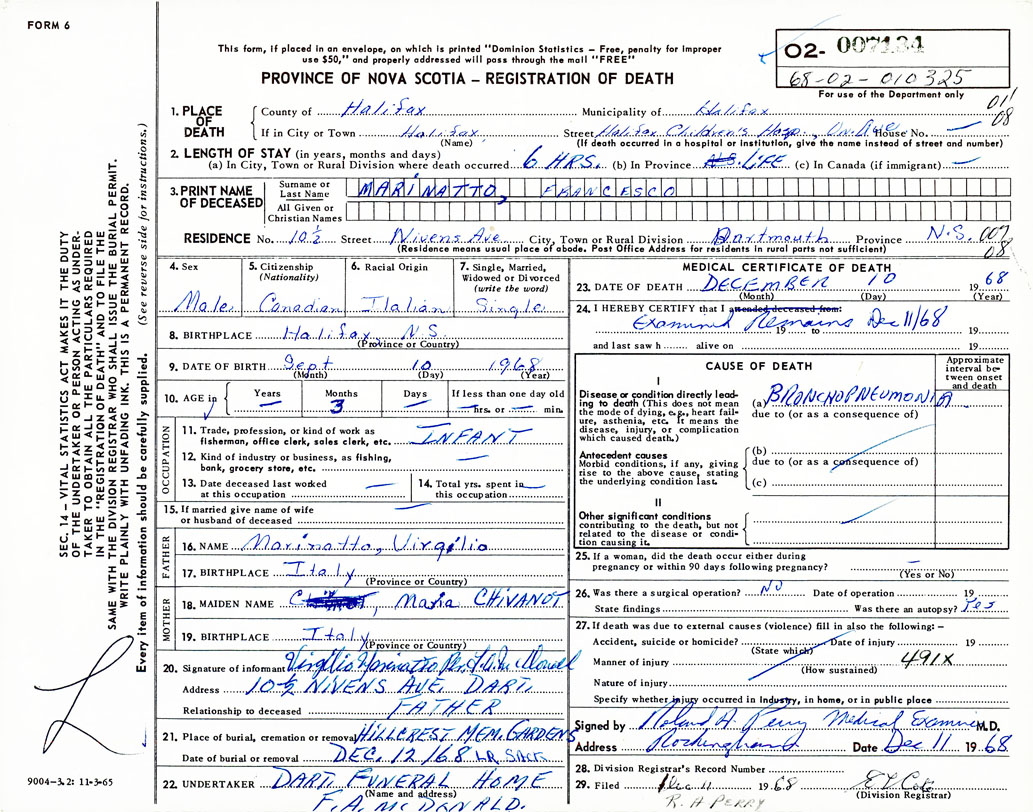 FORM 6
This form, if placed in an envelope, on which is printed "Dominion Statistics – Free, penalty for improper
use $50," and properly addressed will pass through the mail "FREE"
PROVINCE OF NOVA SCOTIA – REGISTRATION OF DEATH
02- 007134
68-02-010325
For use of the Department only
011
08
1. PLACE OF DEATH
County of Halifax Municipality of Halifax
If in City or Town Halifax Street Halifax Children's Hosp., Un. Ave House No. —
(Name) (If death occurred in a hospital or institution, give the name instead of street and number)
2. LENGTH OF STAY (in years, months and days)
(a) In City, Town or Rural Division where death occurred 6 HRS. (b) In Province LIFE (c) In Canada (if immigrant) —
3. PRINT NAME OF DECEASED
Surname or Last Name MARINATTO, FRANCESCO
All Given or Christian Names
RESIDENCE No. 10½ Street Nivens Ave City, Town or Rural Division Dartmouth Province N.S. 007
08
(Residence means usual place of abode. Post Office Address for residents in rural parts not sufficient)
4. Sex
Male
5. Citizenship
(Nationality)
Canadian
6. Racial Origin
Italian
7. Single, Married,
Widowed or Divorced
(write the word)
Single
8. BIRTHPLACE Halifax N.S.
(Province or Country)
9. DATE OF BIRTH Sept 10 1968
(Month) (Day) (Year)
10. AGE in
Years —
Months 3
Days —
If less than one day old
— hrs. or — min.
OCCUPATION
11. Trade, profession, or kind of work as
fisherman, office clerk, sales clerk, etc. INFANT
12. Kind of industry or business, as fishing,
bank, grocery store, etc. —
13. Date deceased last worked
at this occupation —
14. Total yrs. spent in
this occupation —
15. If married give name of wife
or husband of deceased —
FATHER
16. NAME Marinatto, Virgilio
17. BIRTHPLACE Italy
(Province or Country)
MOTHER
18. MAIDEN NAME , Maria CHIVANOT
19. BIRTHPLACE Italy
(Province or Country)
20. Signature of informant Virgilio Marinatto Per
Address 10½ NIVENS AVE. DART.
Relationship to deceased FATHER
21. Place of burial, cremation or removal HILLCREST MEM. GARDENS
Date of burial or removal DEC. 12/68 LR. SACK
22. UNDERTAKER DART. FUNERAL HOME
(Name and address)
F.A. McDONALD.
MEDICAL CERTIFICATE OF DEATH
23. DATE OF DEATH DECEMBER 10 1968
(Month) (Day) (Year)
24. I HEREBY CERTIFY that I attended deceased from:
Examined Remains Dec 11/68
19 to 19
and last saw h alive on 19
CAUSE OF DEATH
Approximate
interval be-
tween onset
and death
I
Disease or condition directly lead-
ing to death (This does not mean
the mode of dying, e.g., heart fail-
ure, asthenia, etc. It means the
disease, injury, or complication
which caused death.)
(a) BRONCHOPNEUMONIA
due to (or as a consequence of)
Antecedent causes
Morbid conditions, if any, giving
rise to the above cause, stating
the underlying condition last.
(b)
due to (or as a consequence of)
(c)
II
Other significant conditions
contributing to the death, but not
related to the disease or condi-
tion causing it.
25. If a woman, did the death occur either during
pregnancy or within 90 days following pregnancy? —
(Yes or No)
26. Was there a surgical operation? NO Date of operation 19
State findings Was there an autopsy? Yes
27. If death was due to external causes (violence) fill in also the following: –
Accident, suicide or homicide? Date of injury 19
(State which)
Manner of injury 491X
(How sustained)
Nature of injury
Specify whether injury occurred in Industry, in home, or in public place
Signed by Roland A. Perry Medical Examiner M.D.
Address Rockingham Date Dec 11 1968
28. Division Registrar's Record Number
29. Filed Dec 11 1968
(Division Registrar)
R. A PERRY
SEC. 14 – VITAL STATISTICS ACT MAKES IT THE DUTY
OF THE UNDERTAKER OR PERSON ACTING AS UNDER-
TAKER TO OBTAIN ALL THE PARTICULARS REQUIRED
IN THE "REGISTRATION OF DEATH" AND TO FILE THE
SAME WITH THE DIVISION REGISTRAR WHO SHALL ISSUE THE BURIAL PERMIT.
WRITE PLAINLY WITH UNFADING INK. THIS IS A PERMANENT RECORD.
Every item of information should be carefully supplied. (See reverse side for instructions.)
9004-3.2: 11-3-65